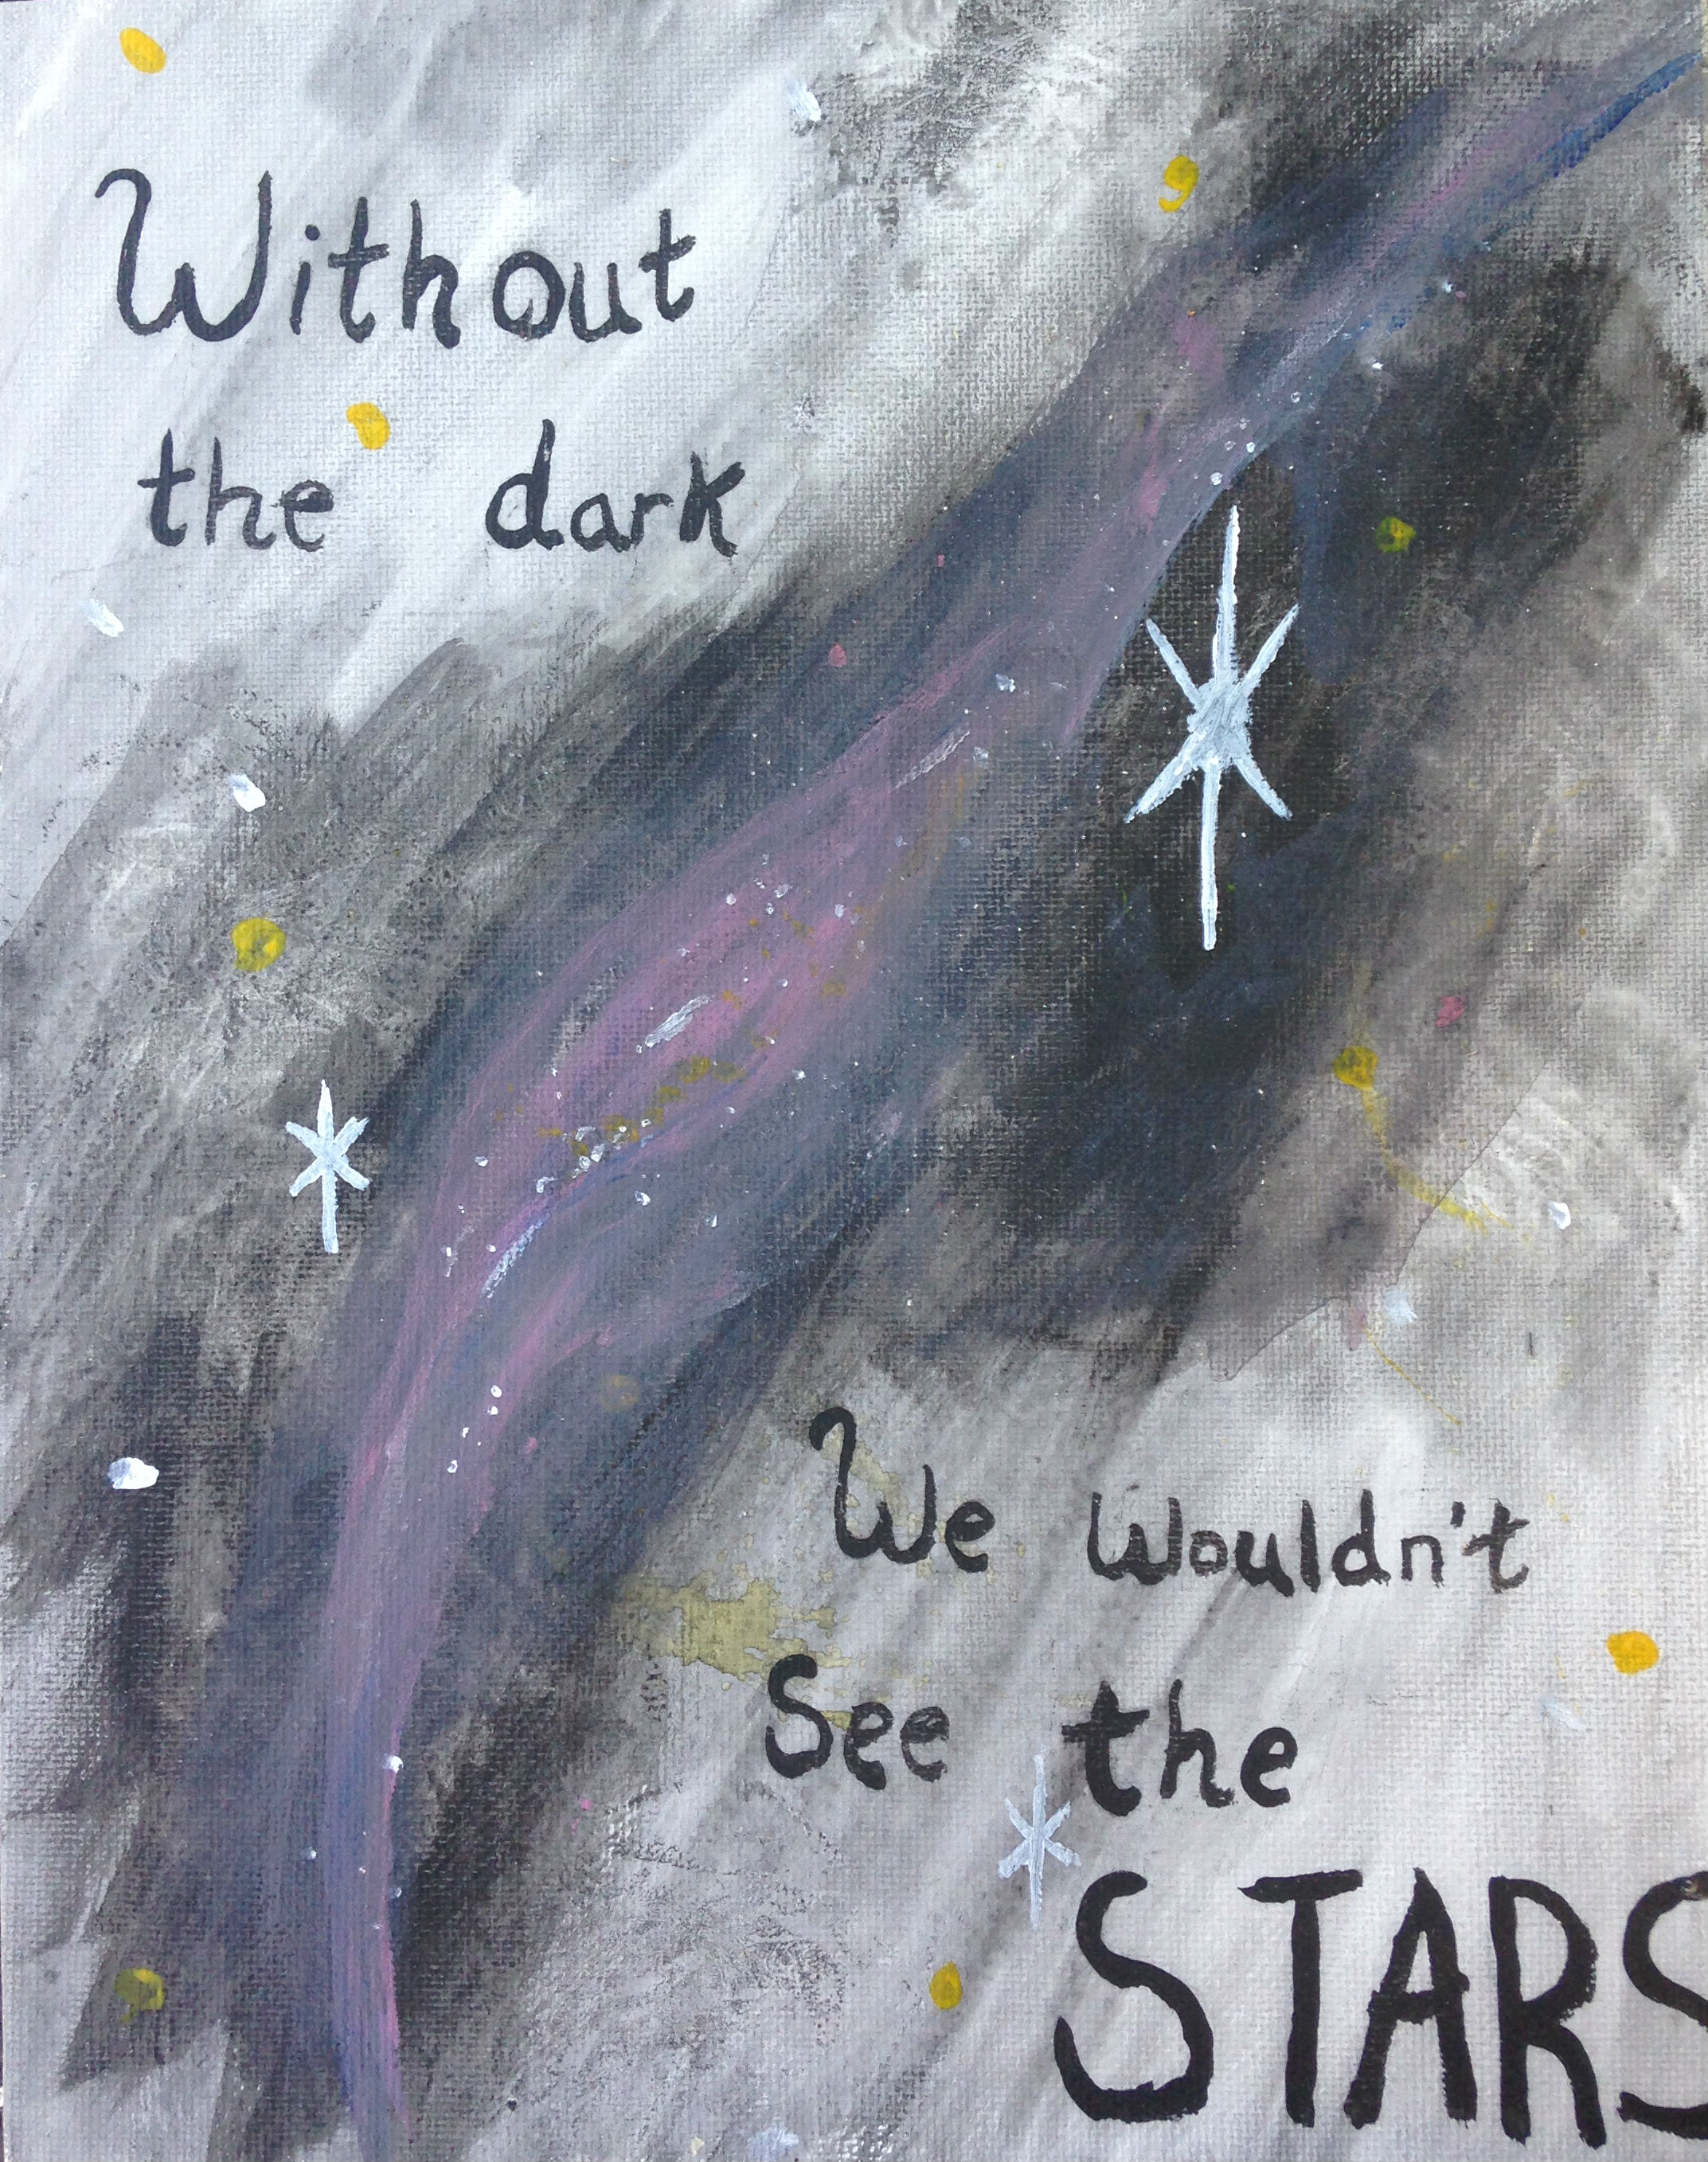 Without
the dark
We Wouldn't
See the
STARS